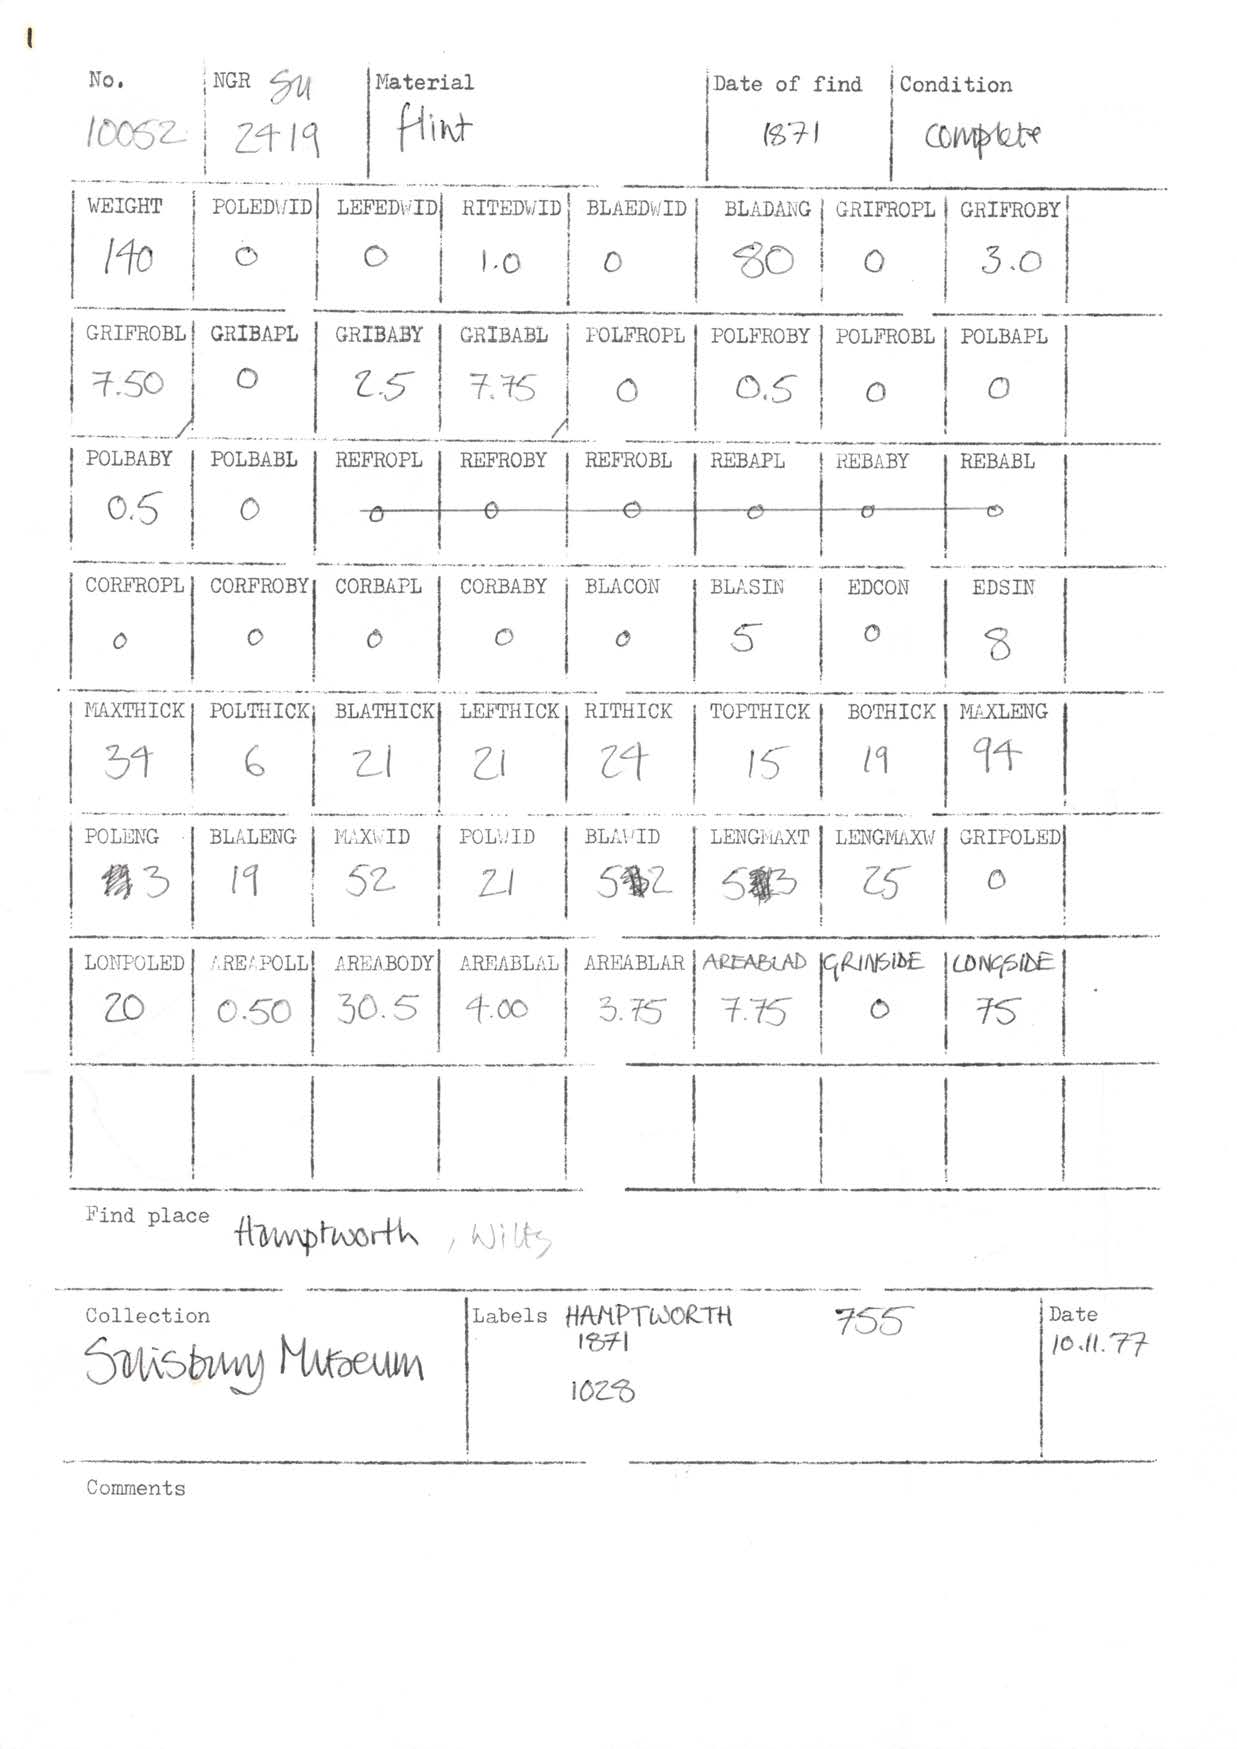 1
No. NGR SU Material Date of find Condition
10052 2419 flint 1871 complete
WEIGHT POLEDWID LEFEDWID RITEDWID BLAEDWID BLADANG GRIFROPL GRIFROBY
140 0 0 1.0 0 80 0 3.0
GRIFROBL GRIBAPL GRIBABY GRIBABL POLFROPL POLFROBY POLFROBL POLBAPL
7.50 0 2.5 7.75 0 0.5 0 0
POLBABY POLBABL REFROPL REFROBY REFROBL REBAPL REBABY REBABL
0.5 0 0 0 0 0 0 0
CORFROPL CORFROBY CORBAPL CORBABY BLACON BLASIN EDCON EDSIN
0 0 0 0 0 5 0 8
MAXTHICK POLTHICK BLATHICK LEFTHICK RITHICK TOPTHICK BOTHICK MAXLENG
34 6 21 21 24 15 19 94
POLENG BLALENG MAXWID POLWID BLAWID LENGMAXT LENGMAXW GRIPOLED
3 19 52 21 52 53 25 0
LONPOLED AREAPOLL AREABODY AREABLAL AREABLAR AREABLAD GRINSIDE LONGSIDE
20 0.50 30.5 4.00 3.75 7.75 0 75
Find place Hamptworth, Wilts
Collection Labels HAMPTWORTH 755 Date
Salisbury Museum 1871 10.11.77
1028
Comments